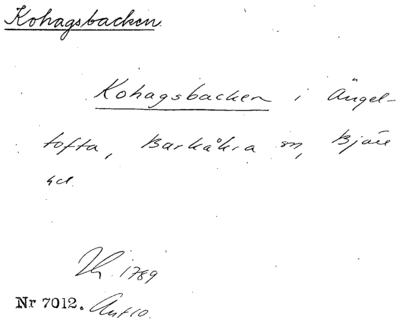 Kohagsbacken
Kohagsbacken i Ängel-
tofta, Barkåkra sn, Bjäre
hd.
1789
Nr 7012.